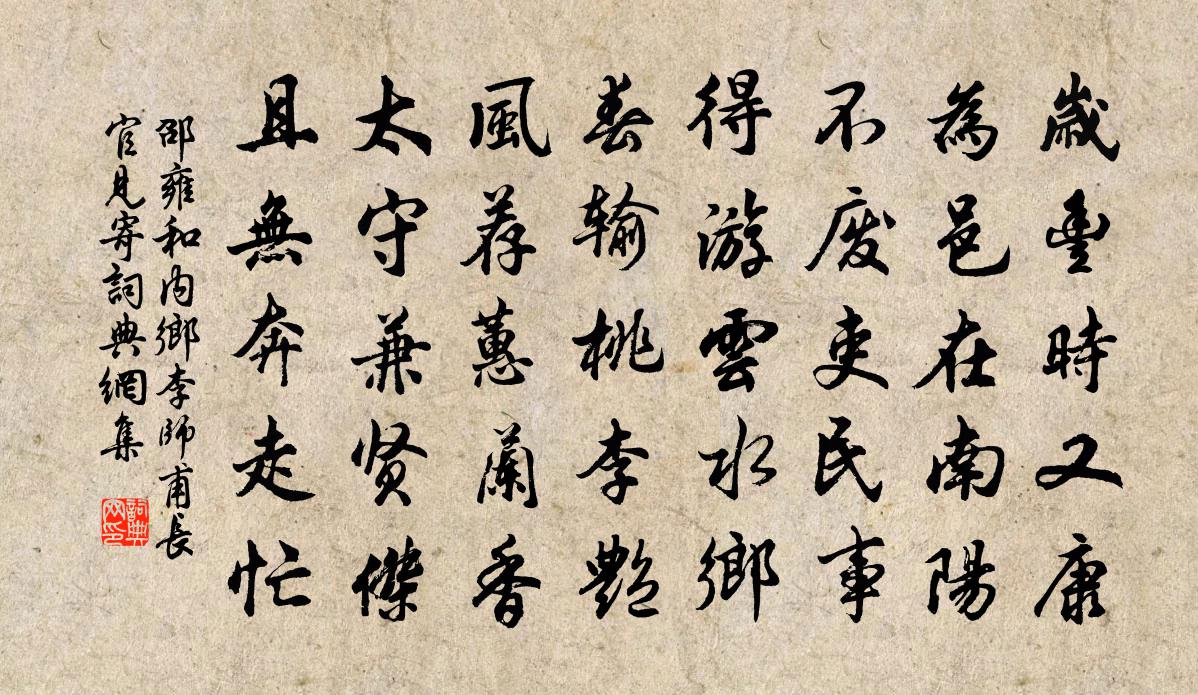 歲豊時又康
為邑在南陽
不廢吏民事
得游雲水鄉
春輸桃李艷
風荐蕙蘭香
太守兼贤傑
且無奔走忙
邵雍和內鄉李師甫長
官見寄詞典網集
詞典
网印